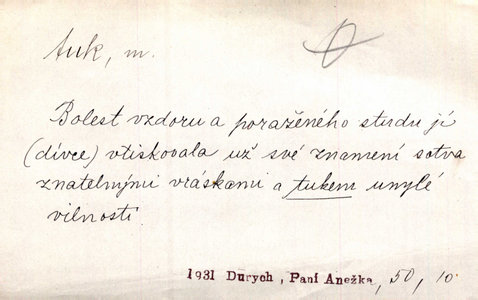 tuk, m.
Bolest vzdoru a poraženého studu jí
(dívce) vtiskovala už své znamení sotva
znatelnými vráskami a tukem unylé
vilnosti.
1931 Durych, Paní Anežka, 50, 10.